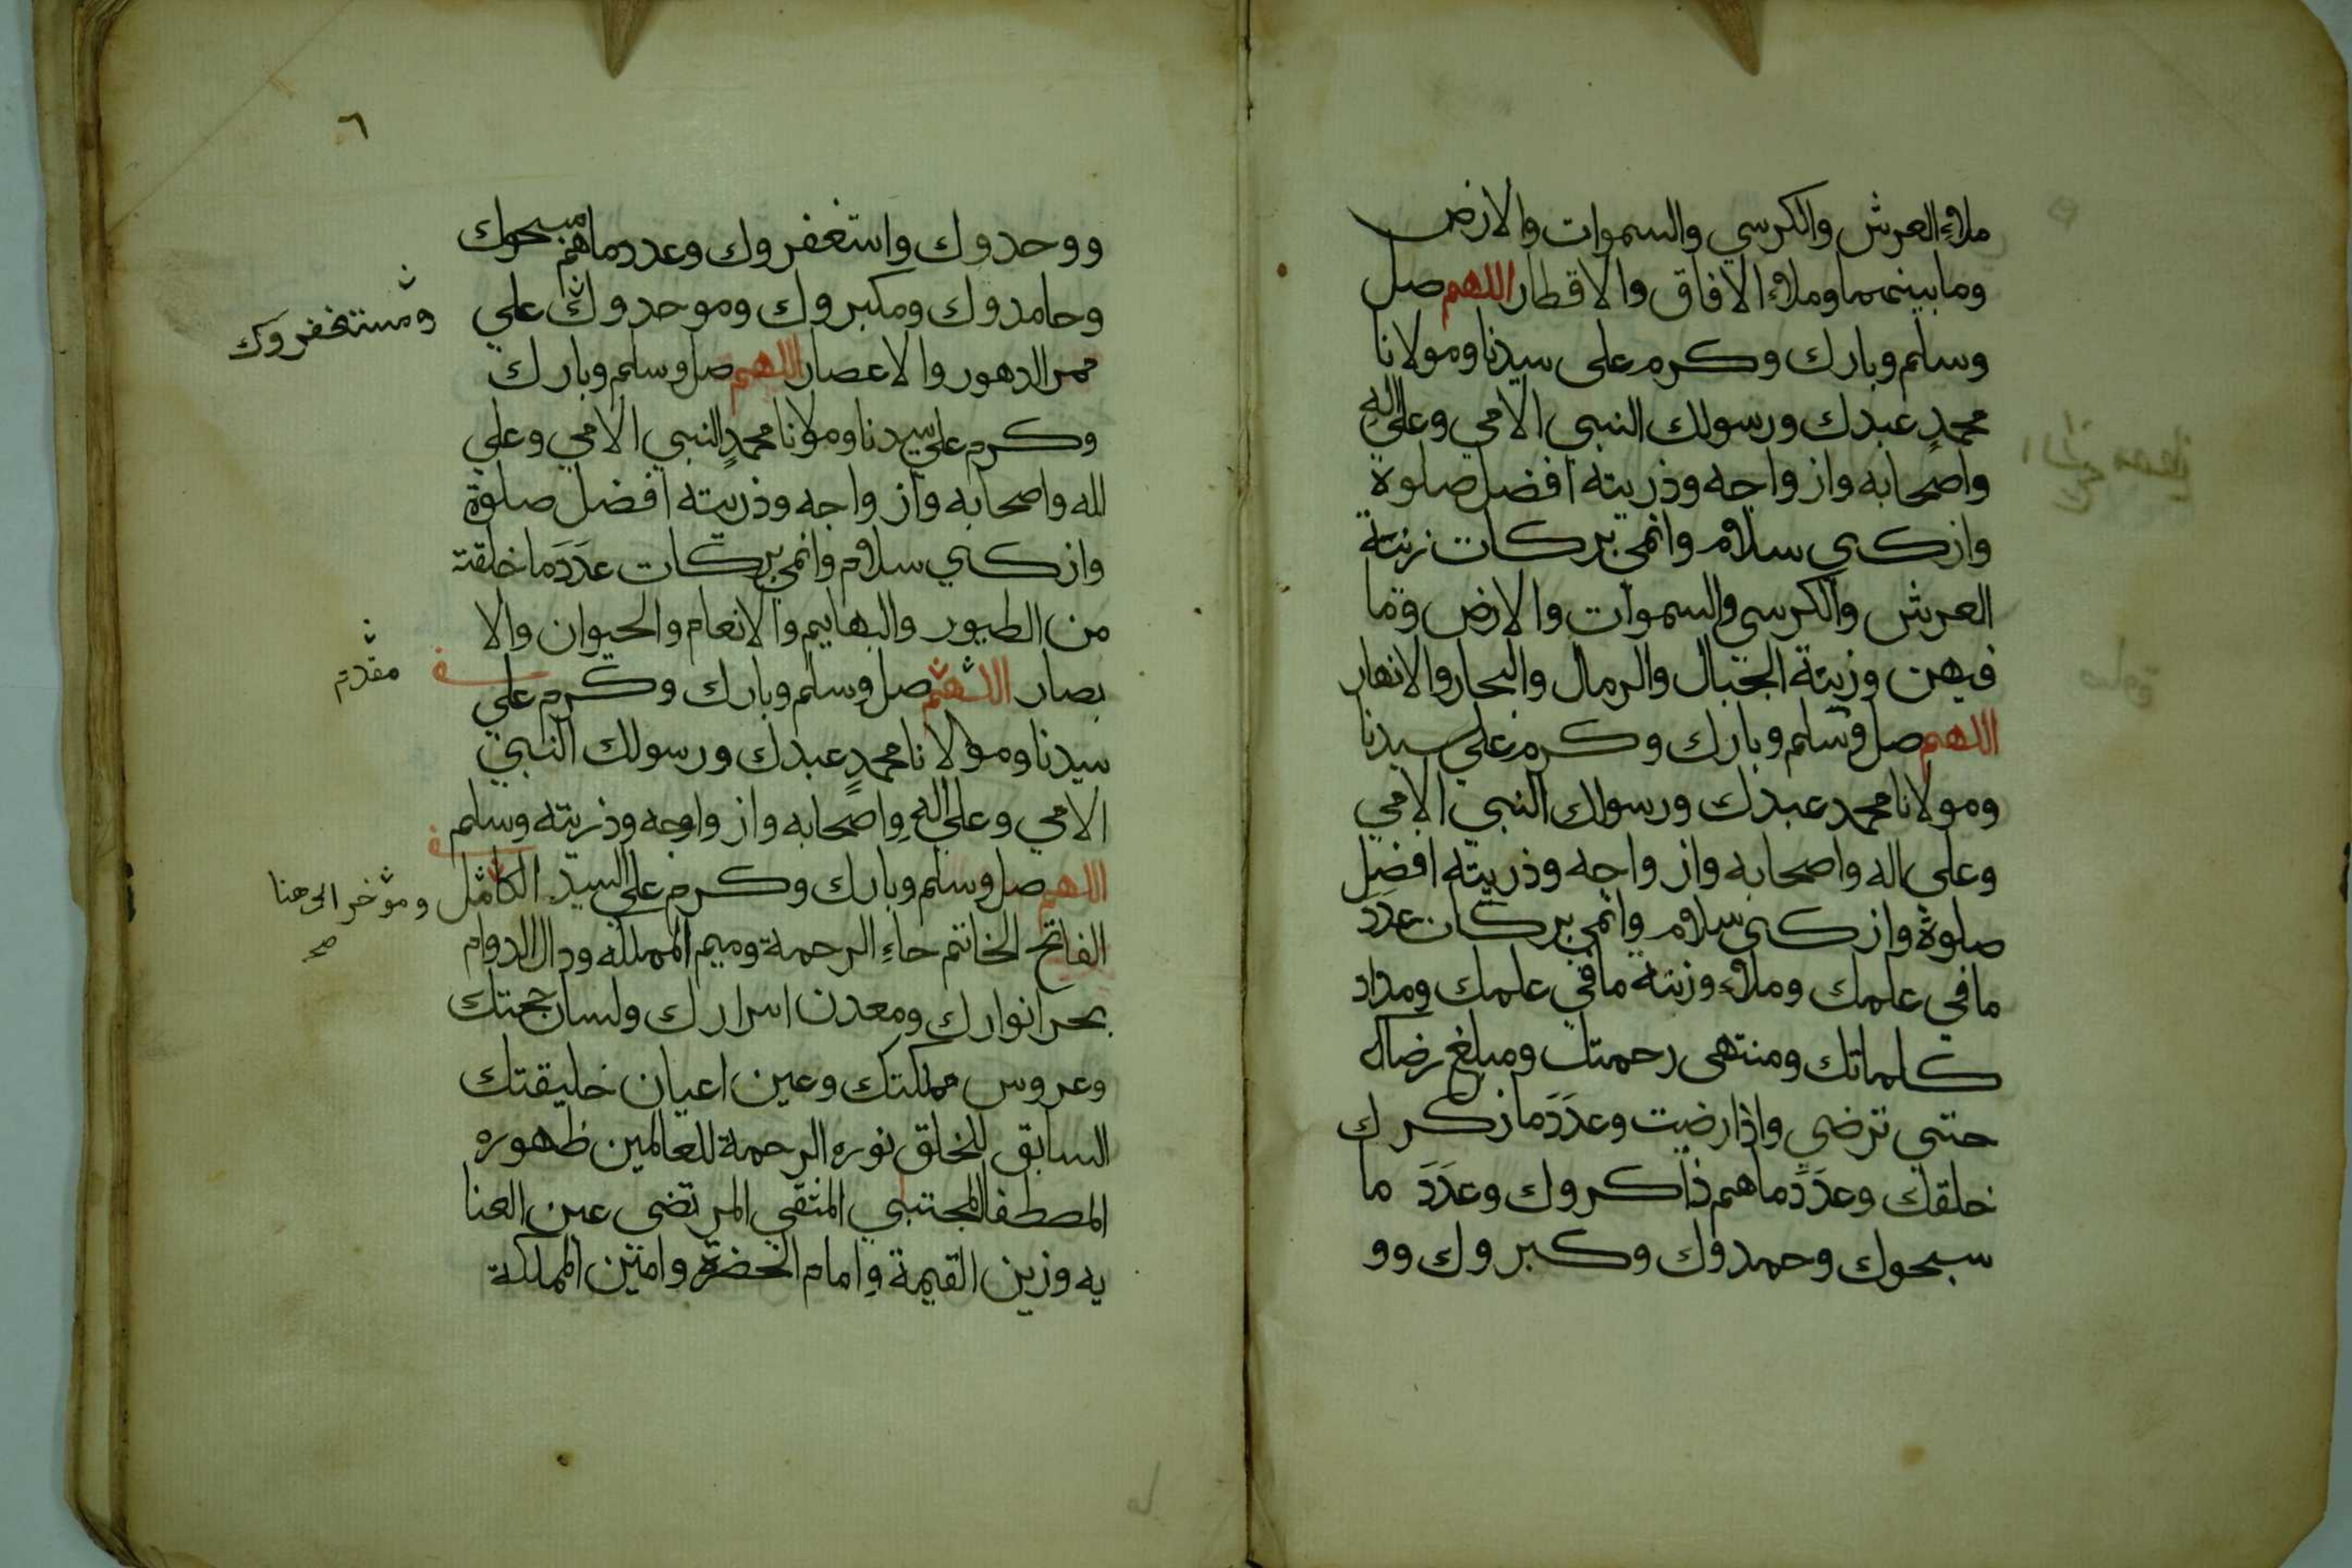 ملاءِ العرش والكرسي والسموات والارض
وما بينهما وملاء الافاق والاقطار اللهم صل
وسلم وبارك وكرم على سيدنا ومولانا
محمدٍ عبدك ورسولك النبي الامي وعلي الهِ
واصحابه وازواجه وذريته افضل صلوة
وازكى سلام وانمى بركات زنة
العرش والكرسي والسموات والارض وما
فيهن وزنة الجبال والرمال والبحار والانهار
اللهم صل وسلم وبارك وكرم علي سيدنا
ومولانا محمد عبدك ورسولك النبي الامي
وعلى اله واصحابه وازواجه وذريته افضل
صلوة وازكى سلام وانمي بركات عدَدَ
ما في علمك وملاء وزنة ما في علمك ومداد
كلماتك ومنتهى رحمتك ومبلغ رضاك
حتي ترضي واذا رضيت وعدَدَ ما ذكرك
خلقك وعدَدَ ما هم ذاكروك وعدَدَ ما
سبحوك وحمدوك وكبروك وو
٦
ووحدوك واستغفروك وعدد ما هم مسبحوك
وحامدوك ومكبروك وموحدوك علي
ومستغفروك
ممر الدهور والاعصار اللهم صل وسلم وبارك
وكرم علي سيدنا ومولانا محمدٍ النبي الامي وعلي
اله واصحابه وازواجه وذريته افضل صلوة
وازكي سلام وانمي بركات عدَدَ ما خلقته
من الطيور والبهايم والانعام والحيوان والا
بصار اللهم صل وسلم وبارك وكرم علي
مقدم
سيدنا ومولانا محمدٍ عبدك ورسولك النبي
الامي وعلي الهِ واصحابه وازواجه وذريته وسلم
اللهم صل وسلم وبارك وكرم علي السيد الكامل
ومؤخر الى هنا
صح
الفاتح الخاتم حاءِ الرحمة وميم المملكه ودال الدوام
بحر انوارك ومعدن اسرارك ولسان حجتك
وعروس مملكتك وعين اعيان خليقتك
السابق للخلق نوره الرحمة للعالمين ظهوره
المصطفا المجتبي المنتقي المرتضي عين العنا
يه وزين القيمة وامام الحضرة وامين المملكة